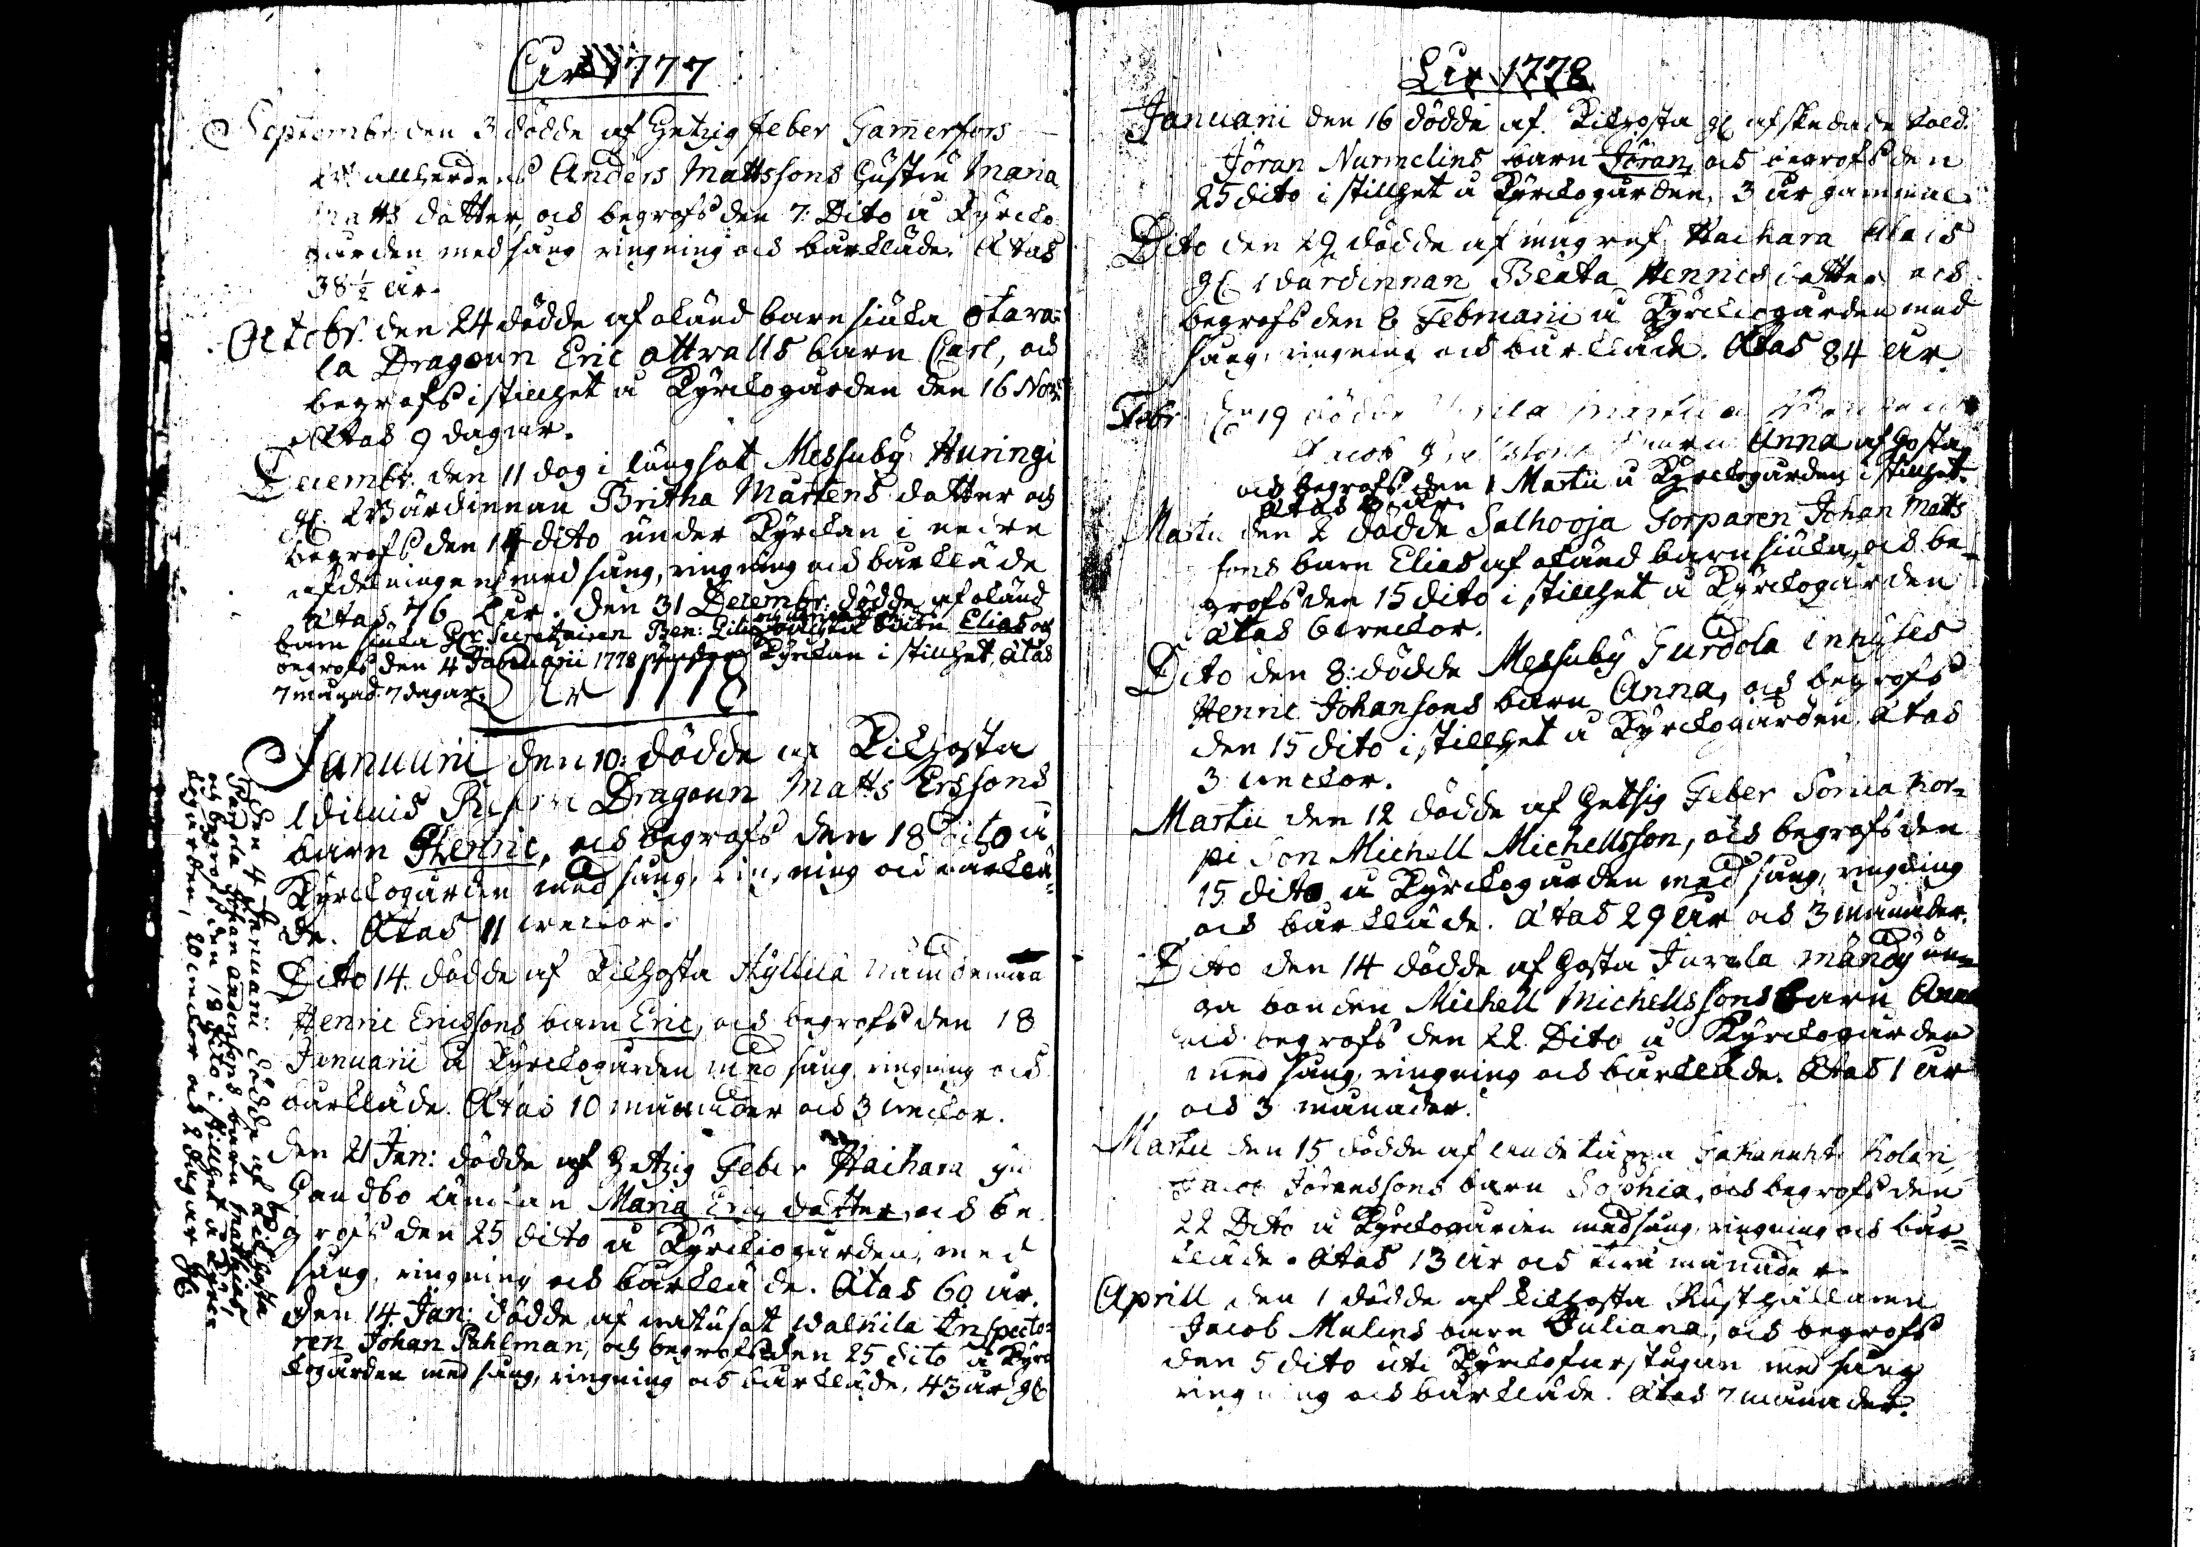 År 1777
Septembr: den 3 dödde af Hetzig feber Hamerfors
Wallherdens Anders Mattssons Hustru Maria
Matts dotter, och begrofs den 7. Dito å Kyrcko
gården med sång ringning och bårkläde. Ätas
38 1/2 år.
Octobr. den 24 dödde af okänd barnsiuka Otara=
la Dragoun Eric Attralls barn Carl, och
begrofs i stillhet å Kyrckogården den 16 Nov:
Ätas 9 dagar.
Decembr. den 11 dog i lungsot Messuby Huringi
gl. Wärdinnan Britha Mårtens dotter och
begrofs den 14 dito under Kyrckan i nedre
afdelningen med sång, ringning och barkläde
ätas 76 år. den 31 Decembr: dödde af okänd
barn siuka Secreteraren Ben: barn Elias och
begrofs den 4 Januarii 1778 under Kyrckan i stillhet, ätas
7 månad. 7 dagar.
År 1778
Januarii den 10: dödde af Kikhosta
Dragoun Matts Erssons
barn Henric, och begrofs den 18 Dito å
Kyrckogården med sång, ringning och barklä=
de. Ätas 11 weckor.
Dito 14. dödde af Kikhosta Hyllilä Nämdeman
Henric Ericssons barn Eric, och begrofs den 18
Januarii å Kyrckogården med sång ringning och
barkläde. Ätas 10 månader och 3 weckor.
den 21 Jan: dödde af Hetzig Feber Haihara
Maria Erics dotter, och be
grofs den 25 dito å Kyrckiogården, med
sång, ringning och bårkläde. Ätas 60 år.
den 14. Jan: dödde af Wattusot Walkila Inspecto=
ren Johan Pahlman, och begrofs den 25 dito å Kyrc
kogården med sång, ringning och bårkläde, 43 år gl
Den 4 Januarii dödde af Kikhosta
Pardola Johan Anderssons barn Mathias
och begrofs den 18 Dito i stillhet å Kyrc
kogården, 20 weckor och 2 dagar gl
År 1778
Januarii den 16 dödde af Kikhosta gl afskedade Sold.
Jöran Nurmelins barn Jöran, och begrofs den
25 dito i stillhet å Kyrckogården, 3 år gammal
Dito den 29 dödde af Haihara Alais
gl wärdinnan Beata Hennics dotter och
begrofs den 8 Februarii å Kyrckiogården med
sång, ringning och bårkläde. Ätas 84 år.
Febr. den 19 dödde
Jacob barn Anna af Hosta
och begrofs den 1 Martii å Kyrckogården i stillhet.
Ätas år.
Martii den 2 dödde Salhooja Torparen Johan Matts
sons barn Elias af okänd barnsiuka, och be=
grofs den 15 dito i stillhet å Kyrckogården
ätas 6 weckor.
Dito den 8: dödde Messuby Gurdola inhyses
Henric Johansons barn Anna, och begrofs
den 15 dito i stillhet å Kyrckogården. Ätas
3 weckor.
Martii den 12 dödde af Hetsig Feber Korc=
pi Son Michell Michellsson, och begrofs den
15 dito å Kyrckogården med sång, ringning
och barkläde. Ätas 29 år och 3 månader.
Dito den 14 dödde af Hosta Jurvala Mandy un=
ga bonden Michell Michellssons barn Anna
och begrofs den 22 Dito å Kyrckogården
med sång, ringning och barkläde. Ätas 1 år
och 3 månader.
Martii den 15 dödde af Takahuhti Kolari
Jacob Jöranssons barn Sophia, och begrofs den
22 Dito å Kyrckogården med sång, ringning och bår=
kläde. Ätas 13 år och två månader.
Aprill den 1 dödde af Kikhosta Rusthållaren
Jacob Malins barn Juliana, och begrofs
den 5 dito uti Kyrckofarstugan med sång
ringning och barkläde. Ätas 7 månader.